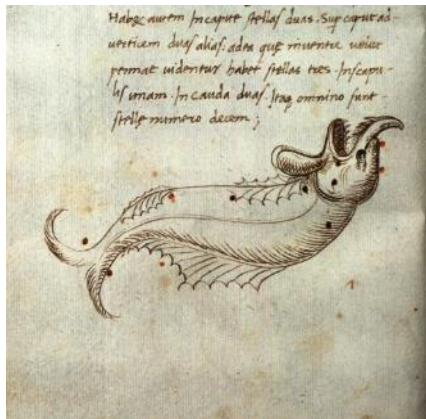 Habet autem In capite stellas duas. Sup caput ad-
uerticem duas alias: adea quę inuentre ueluti
pennae uidentur habet stellas tres. In scapu-
lis unam. In cauda duas. Itaq omnino sunt
stellę numero decem ;